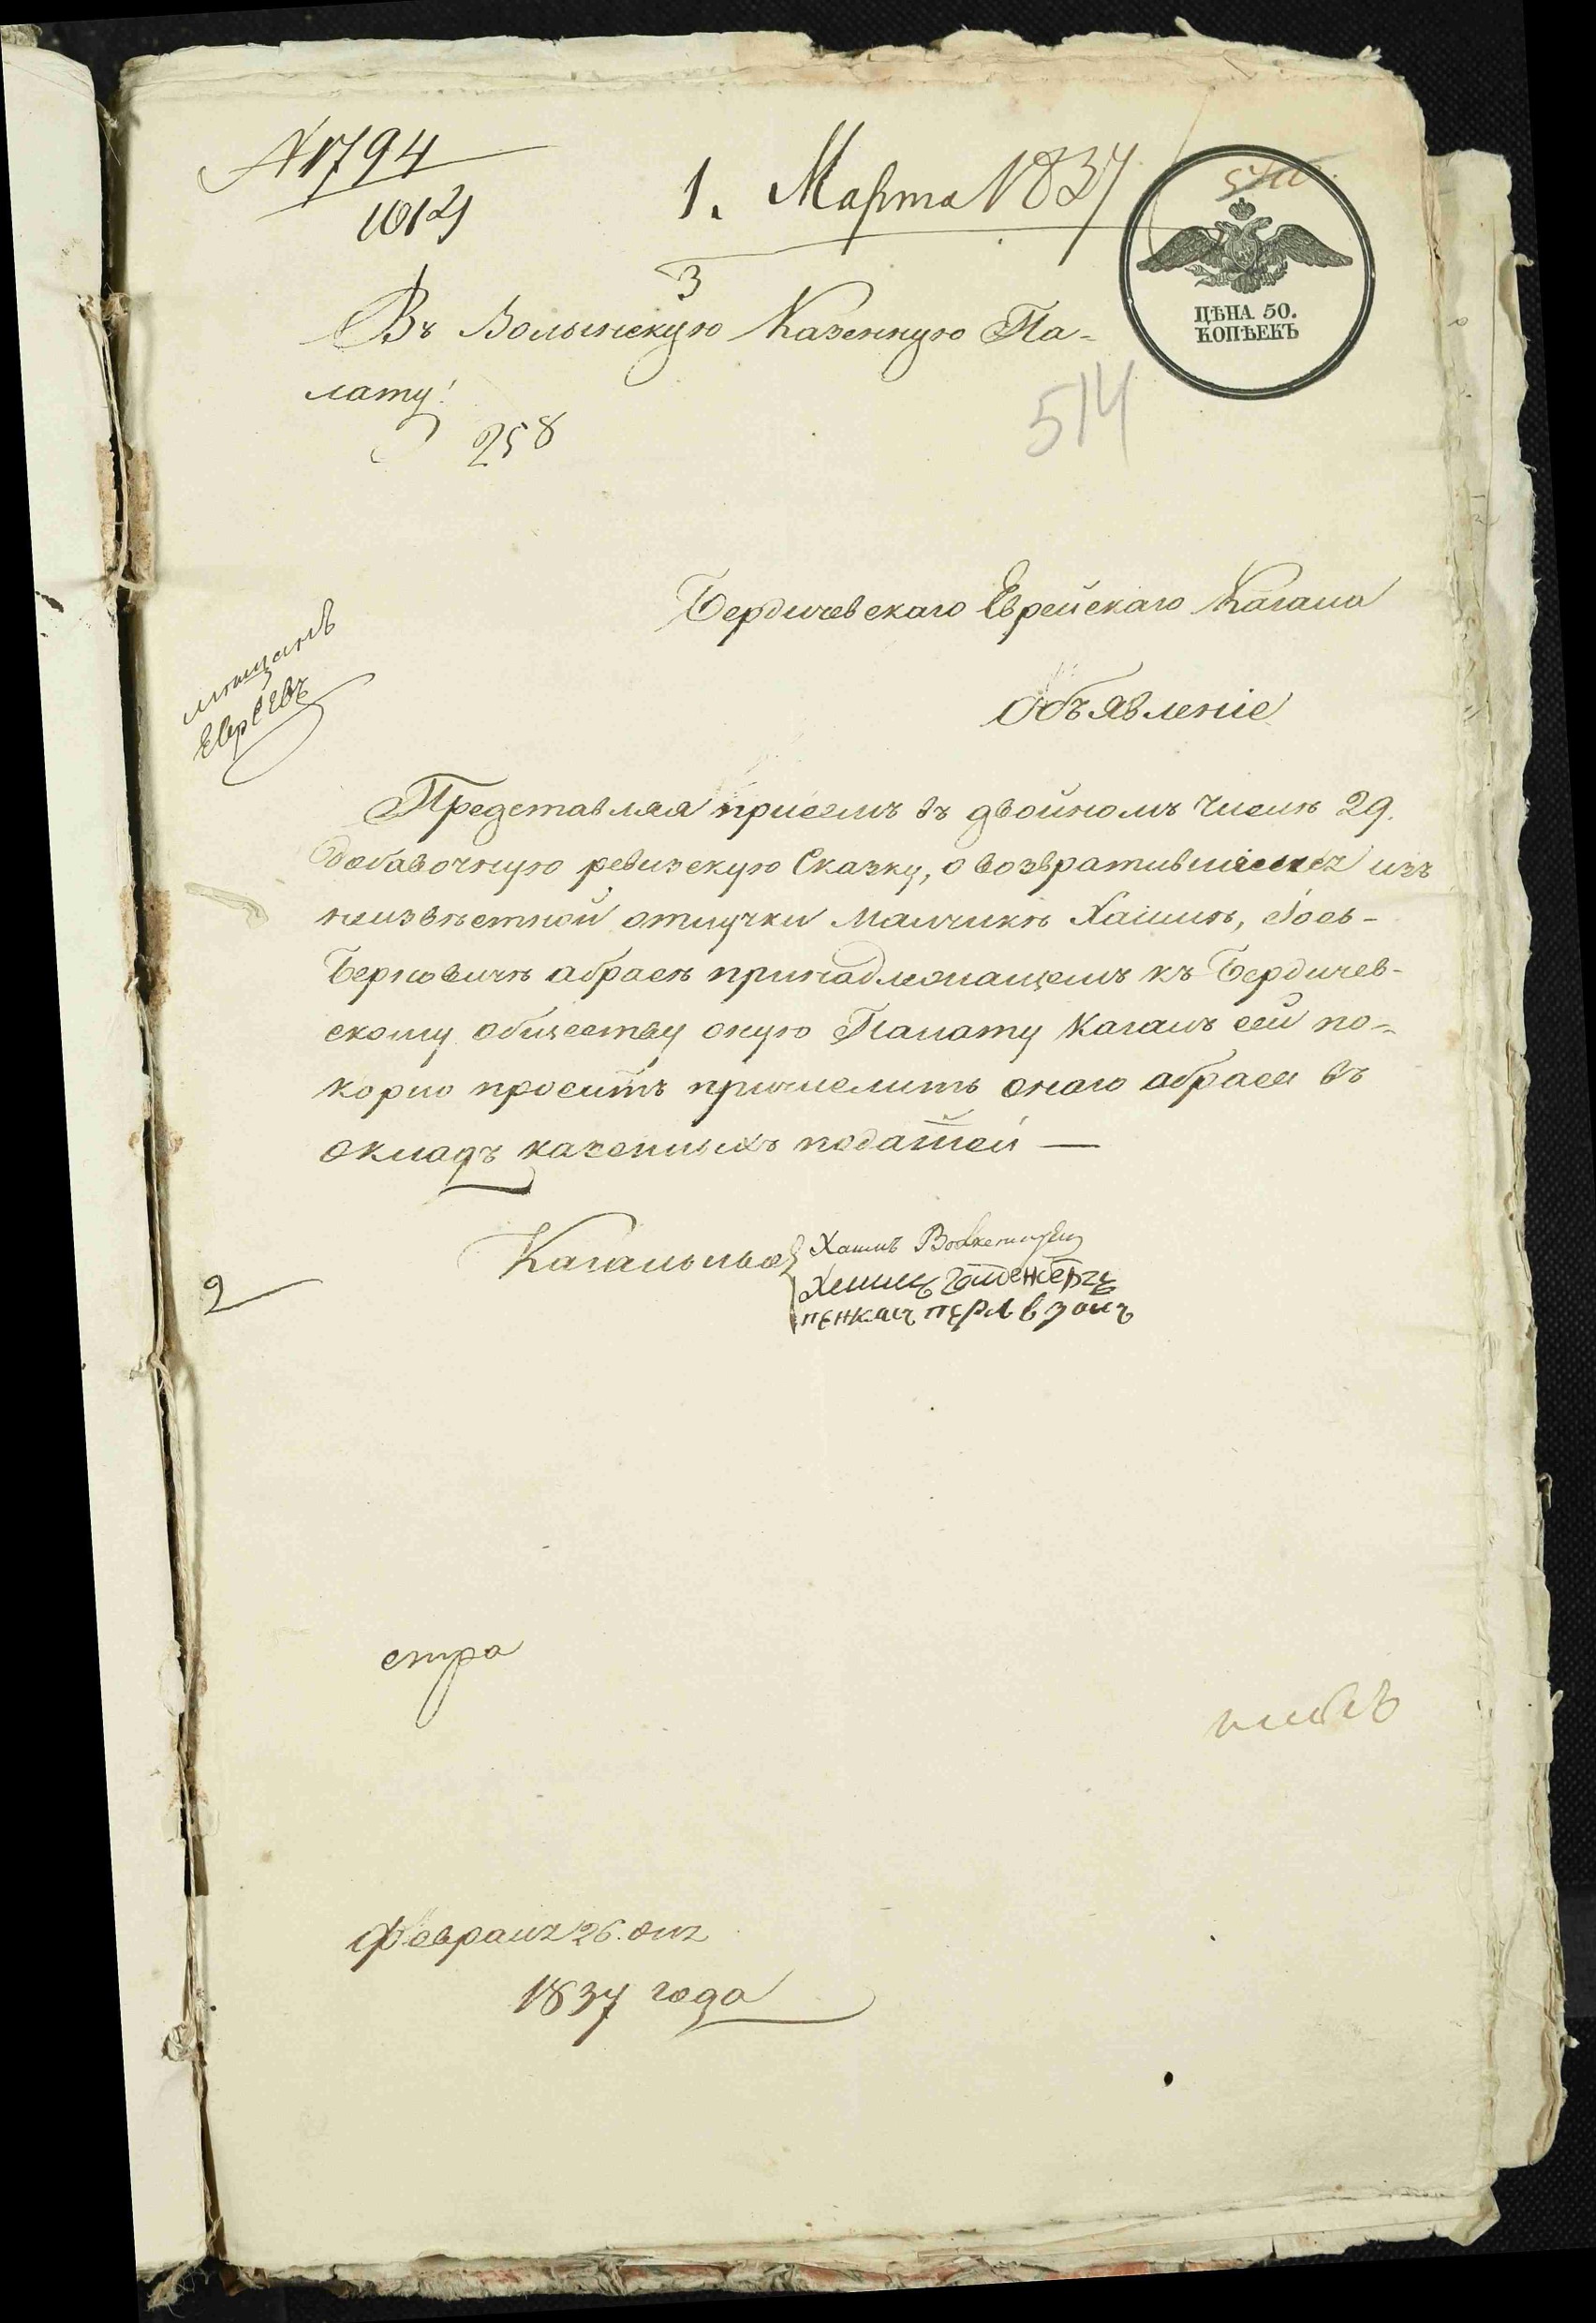 № 1794
1. Марта 1837
ЦѢНА 50.
КОПѢЕКЪ
3
Въ Волынскую Казенную Па-
лату!
258
514
Бердичевскаго Еврейскаго Кагала
Объявленіе
мѣщанъ
Евреевъ
Представляя присемъ въ двойномъ числѣ 29.
добавочную ревизскую Сказку, о возвратившемся изъ
неизвѣстной отлучки Малчикѣ Хаимѣ, Іось-
Берковичѣ абрасѣ принадлежащемъ къ Бердичев-
скому обществу оную Палату Кагалъ сей по-
корно проситъ причислить онаго абраса въ
окладъ казенныхъ податей —
Кагальные
Хаимъ
пѣрлвзонъ
2
Февраля 26. дня
1837 года